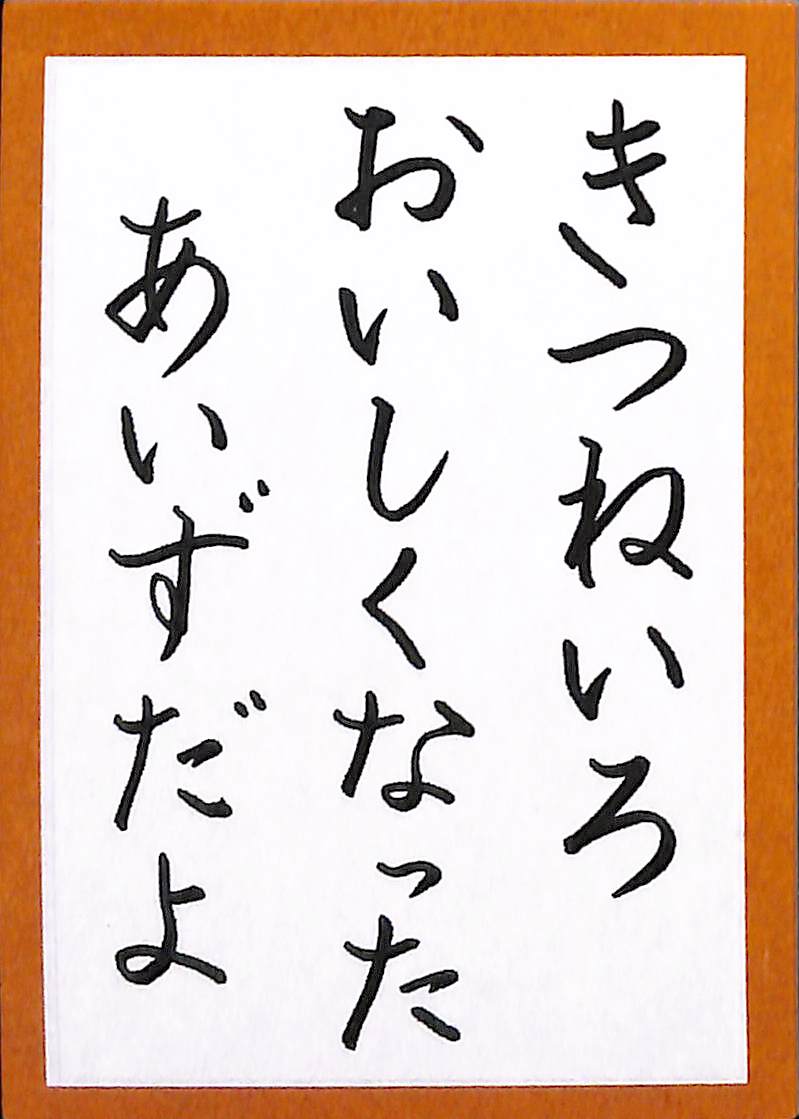 きつねいろ
おいしくなった
あいずだよ